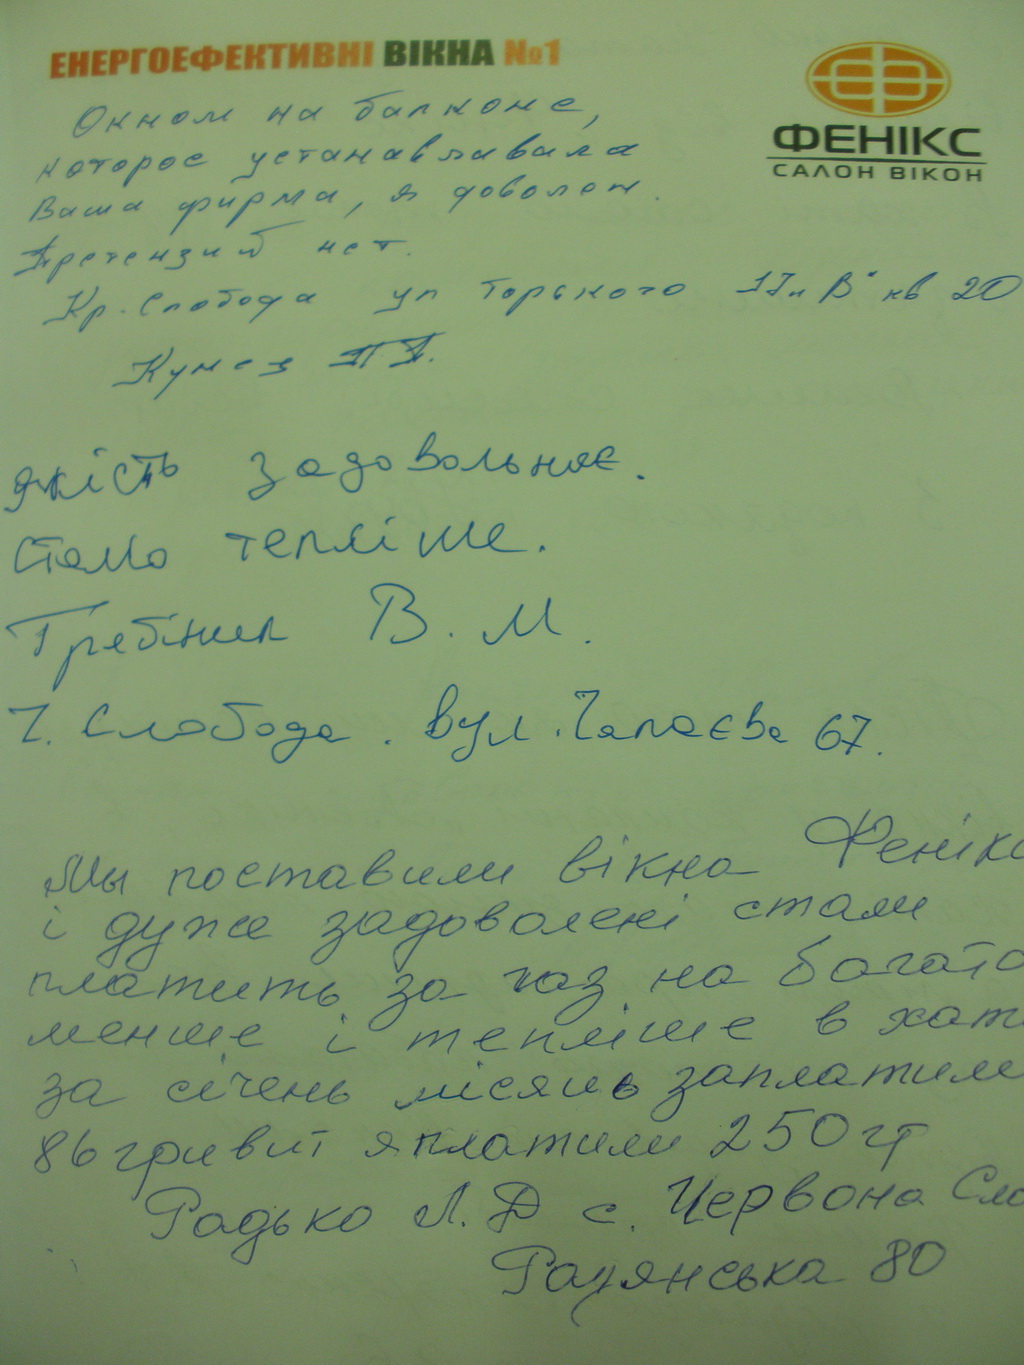 ЕНЕРГОЕФЕКТИВНІ ВІКНА №1
ФЕНІКС
САЛОН ВІКОН
Окном на балконе,
которое устанавливала
Ваша фирма, я доволен.
Претензий нет.
Кр. Слобода ул Горького 17 "В" кв 20
П.
якість задовольняє.
стало тепліше.
В. М.
Ч. Слобода. вул. Чапаєва 67.
Мы поставили вікна Фенікс
і дуже задоволені стали
платить за газ на багато
менше і тепліше в хаті
за січень місяць заплатили
86 гривит я платили 250 гр
Радько Л. Д с. Червона Сло
Радянська 80